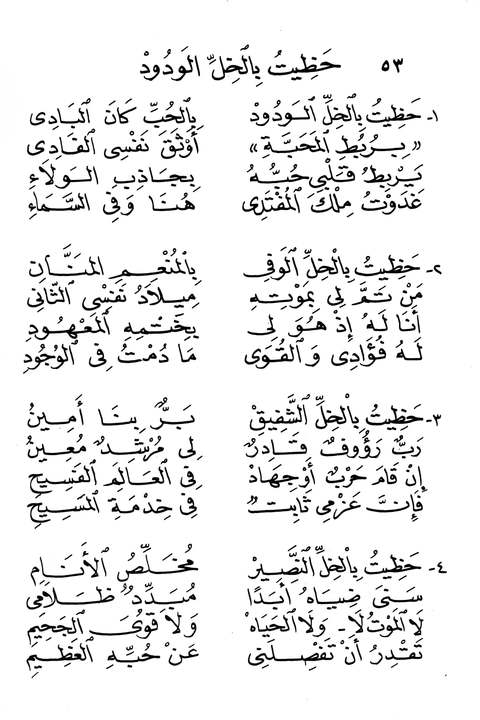 ٥٣ حَظِيتُ بِالْخِلِّ الْوَدُودْ
١- حَظِيتُ بِالْخِلِّ الْوَدُودْ بِالْحُبِّ كَانَ الْبَادِى
«بِرُبُطِ الْمَحَبَّةِ» أَوْثَقَ نَفْسِى الْفَادِى
يَرْبِطُ قَلْبِى حُبُّهُ بِجَاذِبِ الْوَلَاءِ
غَدَوْتُ مِلْكَ الْمُفْتَدِى هُنَا وَفِى السَّمَاءِ
٢- حَظِيتُ بِالْخِلِّ الْوَفِى بِالْمُنْعِمِ الْمَنَّانِ
مَنْ تَمَّ لِى بِمَوْتِهِ مِيلَادُ نَفْسِى الثَّانِى
أَنَا لَهُ إِذْ هُوَ لِى بِخَتْمِهِ الْمَعْهُودِ
لَهُ فُؤَادِى وَالْقُوَى مَا دُمْتُ فِى الْوُجُودِ
٣- حَظِيتُ بِالْخِلِّ الشَّفِيقْ بَرٌّ بِنَا أَمِينُ
رَبٌّ رَؤُوفٌ قَادِرٌ لِى مُرْشِدٌ مُعِينُ
إِنْ قَامَ حَرْبٌ أَوْ جِهَادْ فِى الْعَالَمِ الْفَسِيحِ
فَإِنَّ عَزْمِى ثَابِتٌ فِى خِدْمَةِ الْمَسِيحِ
٤- حَظِيتُ بِالْخِلِّ النَّصِيرْ مُخَلِّصُ الْأَنَامِ
سَنَى ضِيَاهُ أَبَدًا مُبَدِّدٌ ظَلَامِى
لَا الْمَوْتُ لَا- وَلَا الْحَيَاهْ وَلَا قُوَى الْجَحِيمِ
تَقْدِرُ أَنْ تَفْصِلَنِى عَنْ حُبِّهِ الْعَظِيمِ